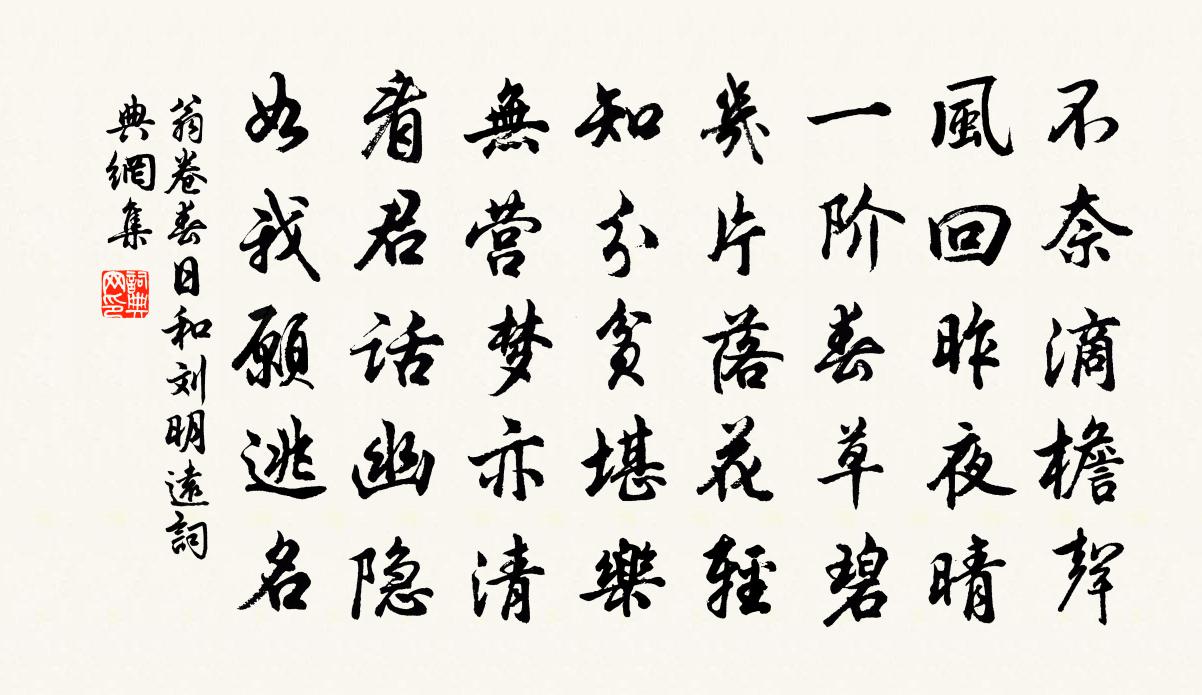 不奈滴檐聲
風回昨夜晴
一阶春草碧
幾片落花輕
知分贫堪樂
無营梦亦清
看君话幽隐
如我願逃名
翁卷春日和刘明遠詞
典網集
詞典
网印